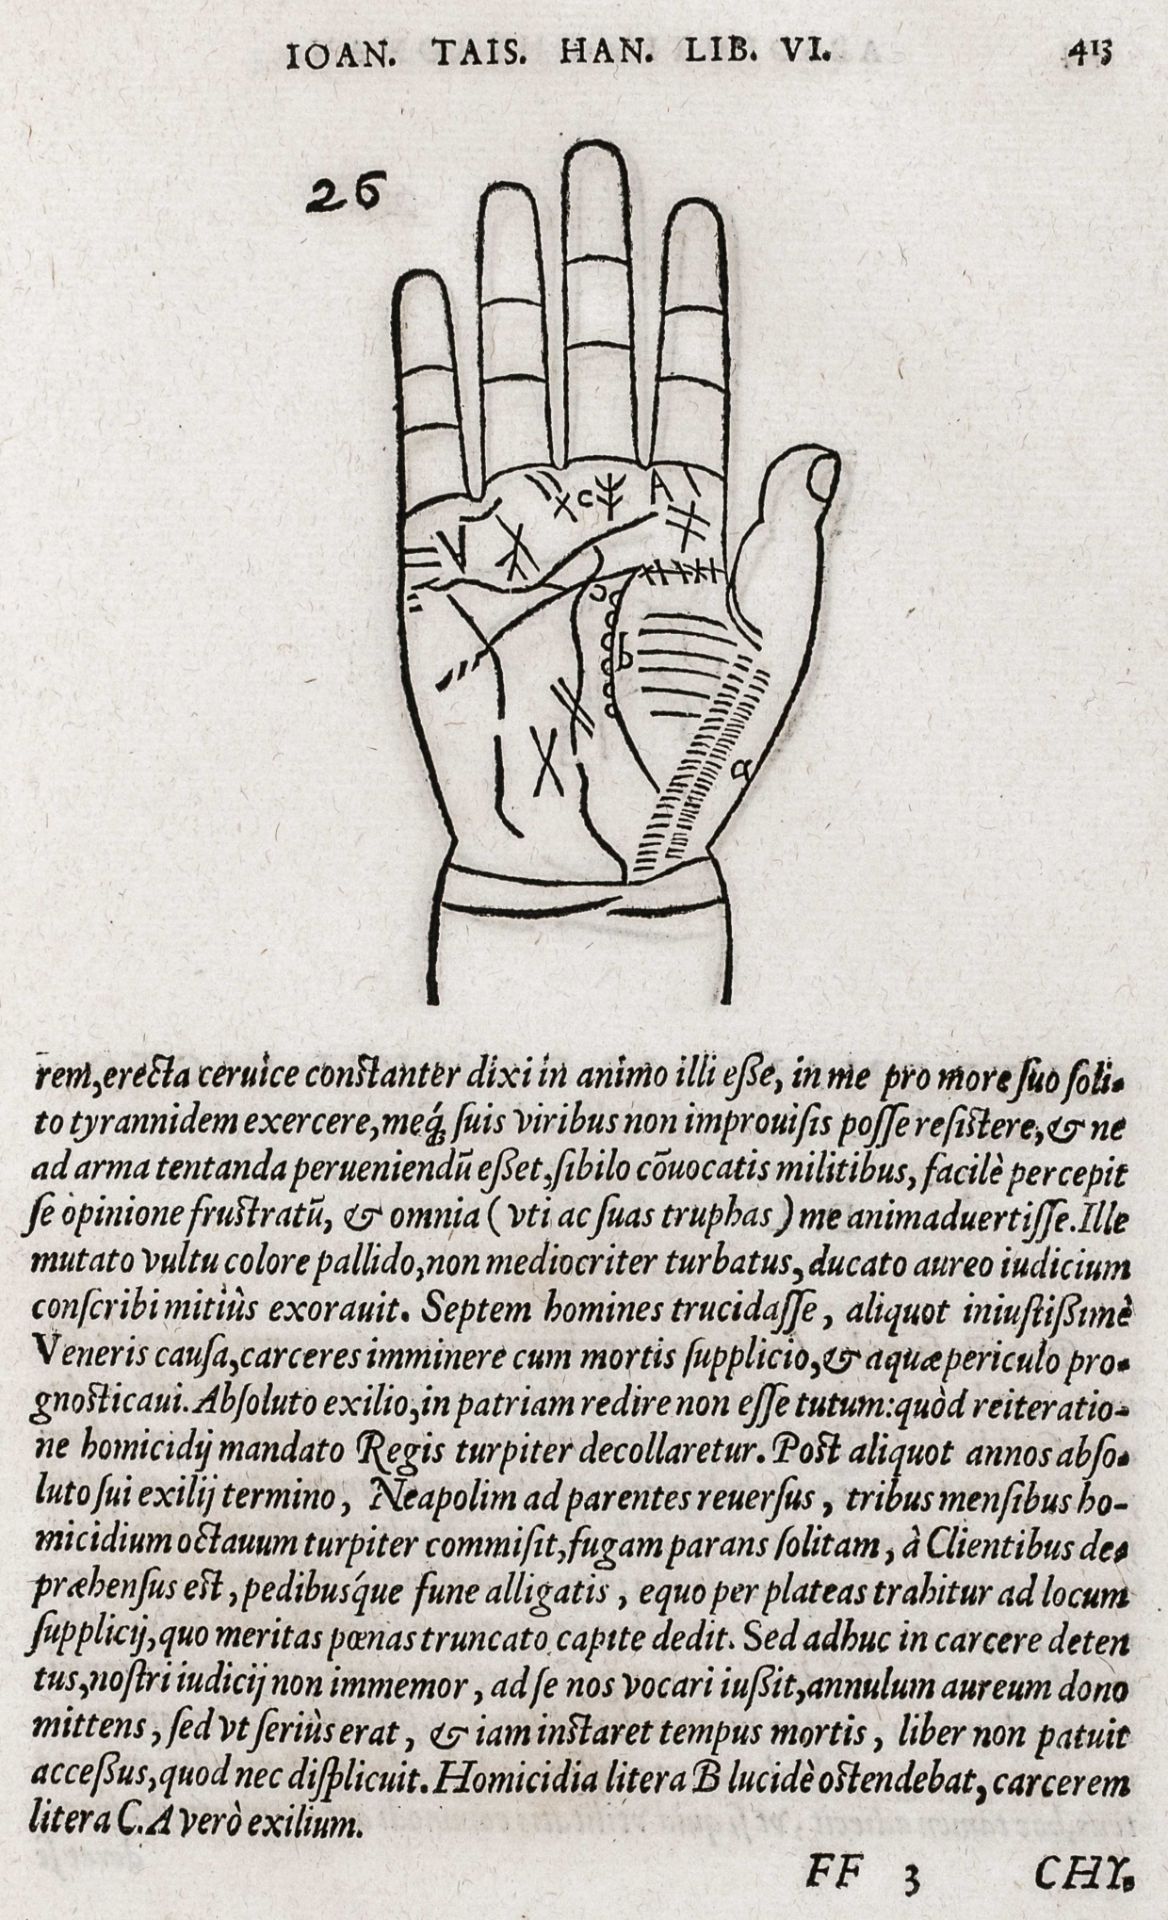 IOAN. TAIS. HAN. LIB. VI. 413
26
C A
b
a
rem, erecta ceruice constanter dixi in animo illi eſſe, in me pro more ſuo ſoli-
to tyrannidem exercere, meq́; ſuis viribus non improuiſis poſſe reſiſtere, & ne
ad arma tentanda perueniendū eſſet, ſibilo cōuocatis militibus, facilè percepit
ſe opinione fruſtratū, & omnia ( vti ac ſuas truphas ) me animaduertiſſe. Ille
mutato vultu colore pallido, non mediocriter turbatus, ducato aureo iudicium
conſcribi mitiùs exorauit. Septem homines trucidaſſe, aliquot iniuſtiſsimè
Veneris cauſa, carceres imminere cum mortis ſupplicio, & aquæ periculo pro-
gnoſticaui. Abſoluto exilio, in patriam redire non eſſe tutum: quòd reiteratio-
ne homicidij mandato Regis turpiter decollaretur. Poſt aliquot annos abſo-
luto ſui exilij termino, Neapolim ad parentes reuerſus, tribus menſibus ho-
micidium octauum turpiter commiſit, fugam parans ſolitam, à Clientibus de-
præhenſus eſt, pedibusq́ue fune alligatis, equo per plateas trahitur ad locum
ſupplicij, quo meritas pœnas truncato capite dedit. Sed adhuc in carcere deten
tus, noſtri iudicij non immemor, ad ſe nos vocari iuſsit, annulum aureum dono
mittens, ſed vt ſeriùs erat, & iam inſtaret tempus mortis, liber non patuit
acceſſus, quod nec diſplicuit. Homicidia litera B lucidè oſtendebat, carcerem
litera C. A verò exilium.
FF 3 CHY.